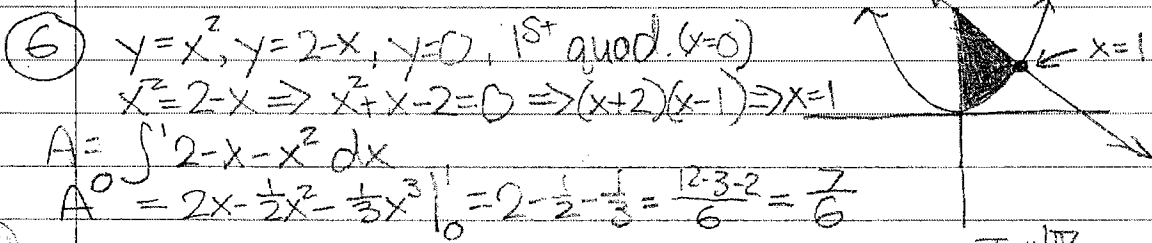 6 y=x², y=2-x, y=0, 1st quad. (x=0)
x=1
x²=2-x ⇒ x²+x-2=0 ⇒ (x+2)(x-1) ⇒ x=1
A = ∫₀¹ 2-x-x² dx
A = 2x-½x²-⅓x³|₀¹ = 2-½-⅓ = (12-3-2)/6 = 7/6